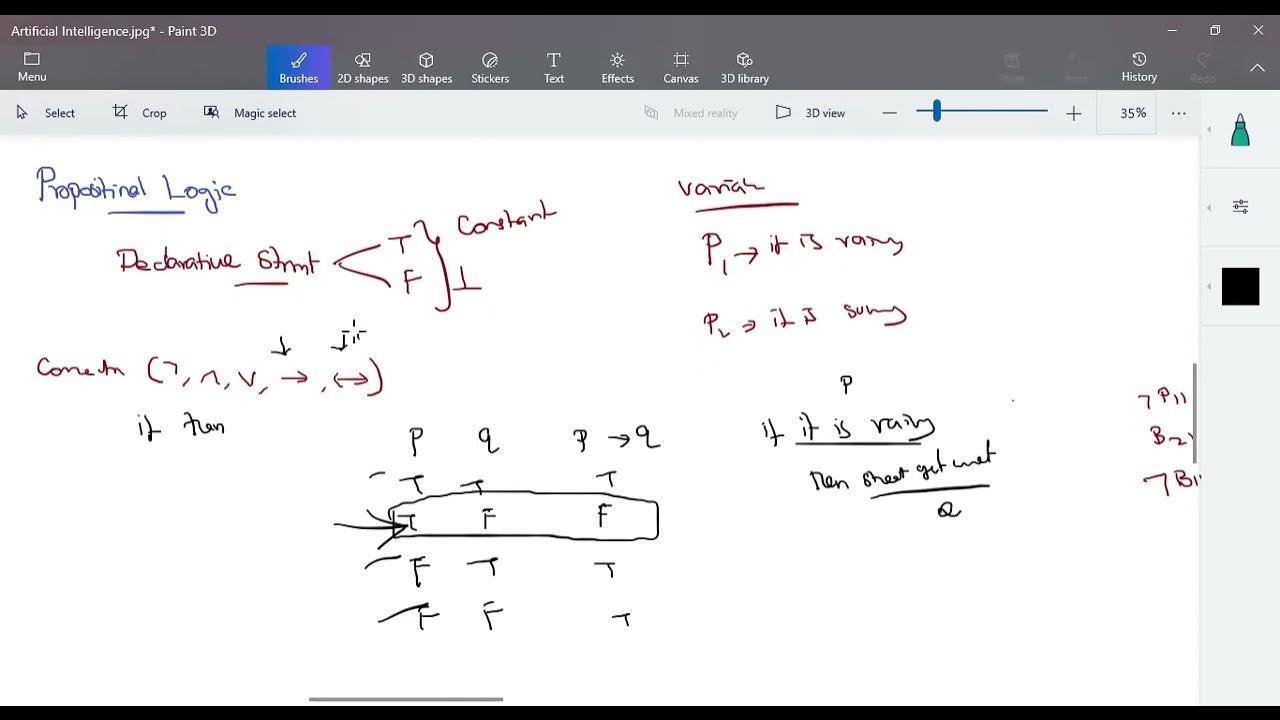 Artificial Intelligence.jpg* - Paint 3D
Menu
Brushes
2D shapes
3D shapes
Stickers
Text
Effects
Canvas
3D library
History
Redo
Select
Crop
Magic select
Mixed reality
3D view
35%
Propositinal Logic
Declarative Stmt
T
F
Constant
⊥
(¬, ∧, ∨, →, ↔)
if then
P q P → q
T T T
T F F
F T T
F F T
P₁ → it is rainy
P₂ → it is sunny
P
if it is rainy
then street get wet
Q
¬P₁₁
B₂₁
¬B₁